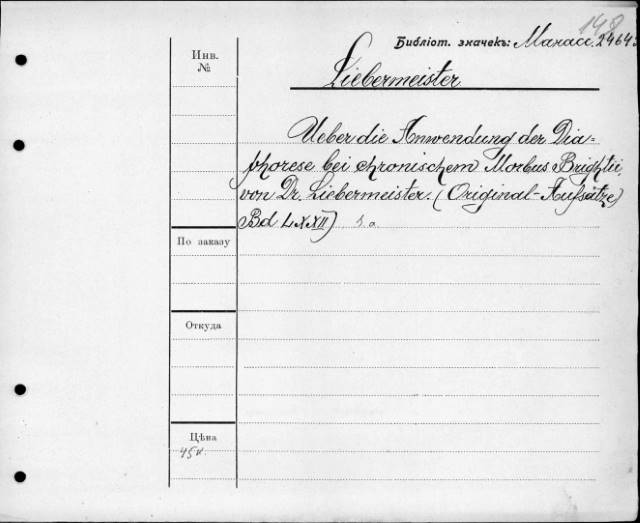 148
Библіот. значекъ: Манасс. 24643
Инв.
№
Liebermeister
Ueber die Anwendung der Dia-
phorese bei chronischem Morbus Brightii,
von Dr. Liebermeister. (Original-Aufsätze)
Bd LXXII) s. a.
По заказу
Откуда
Цѣна
45к.